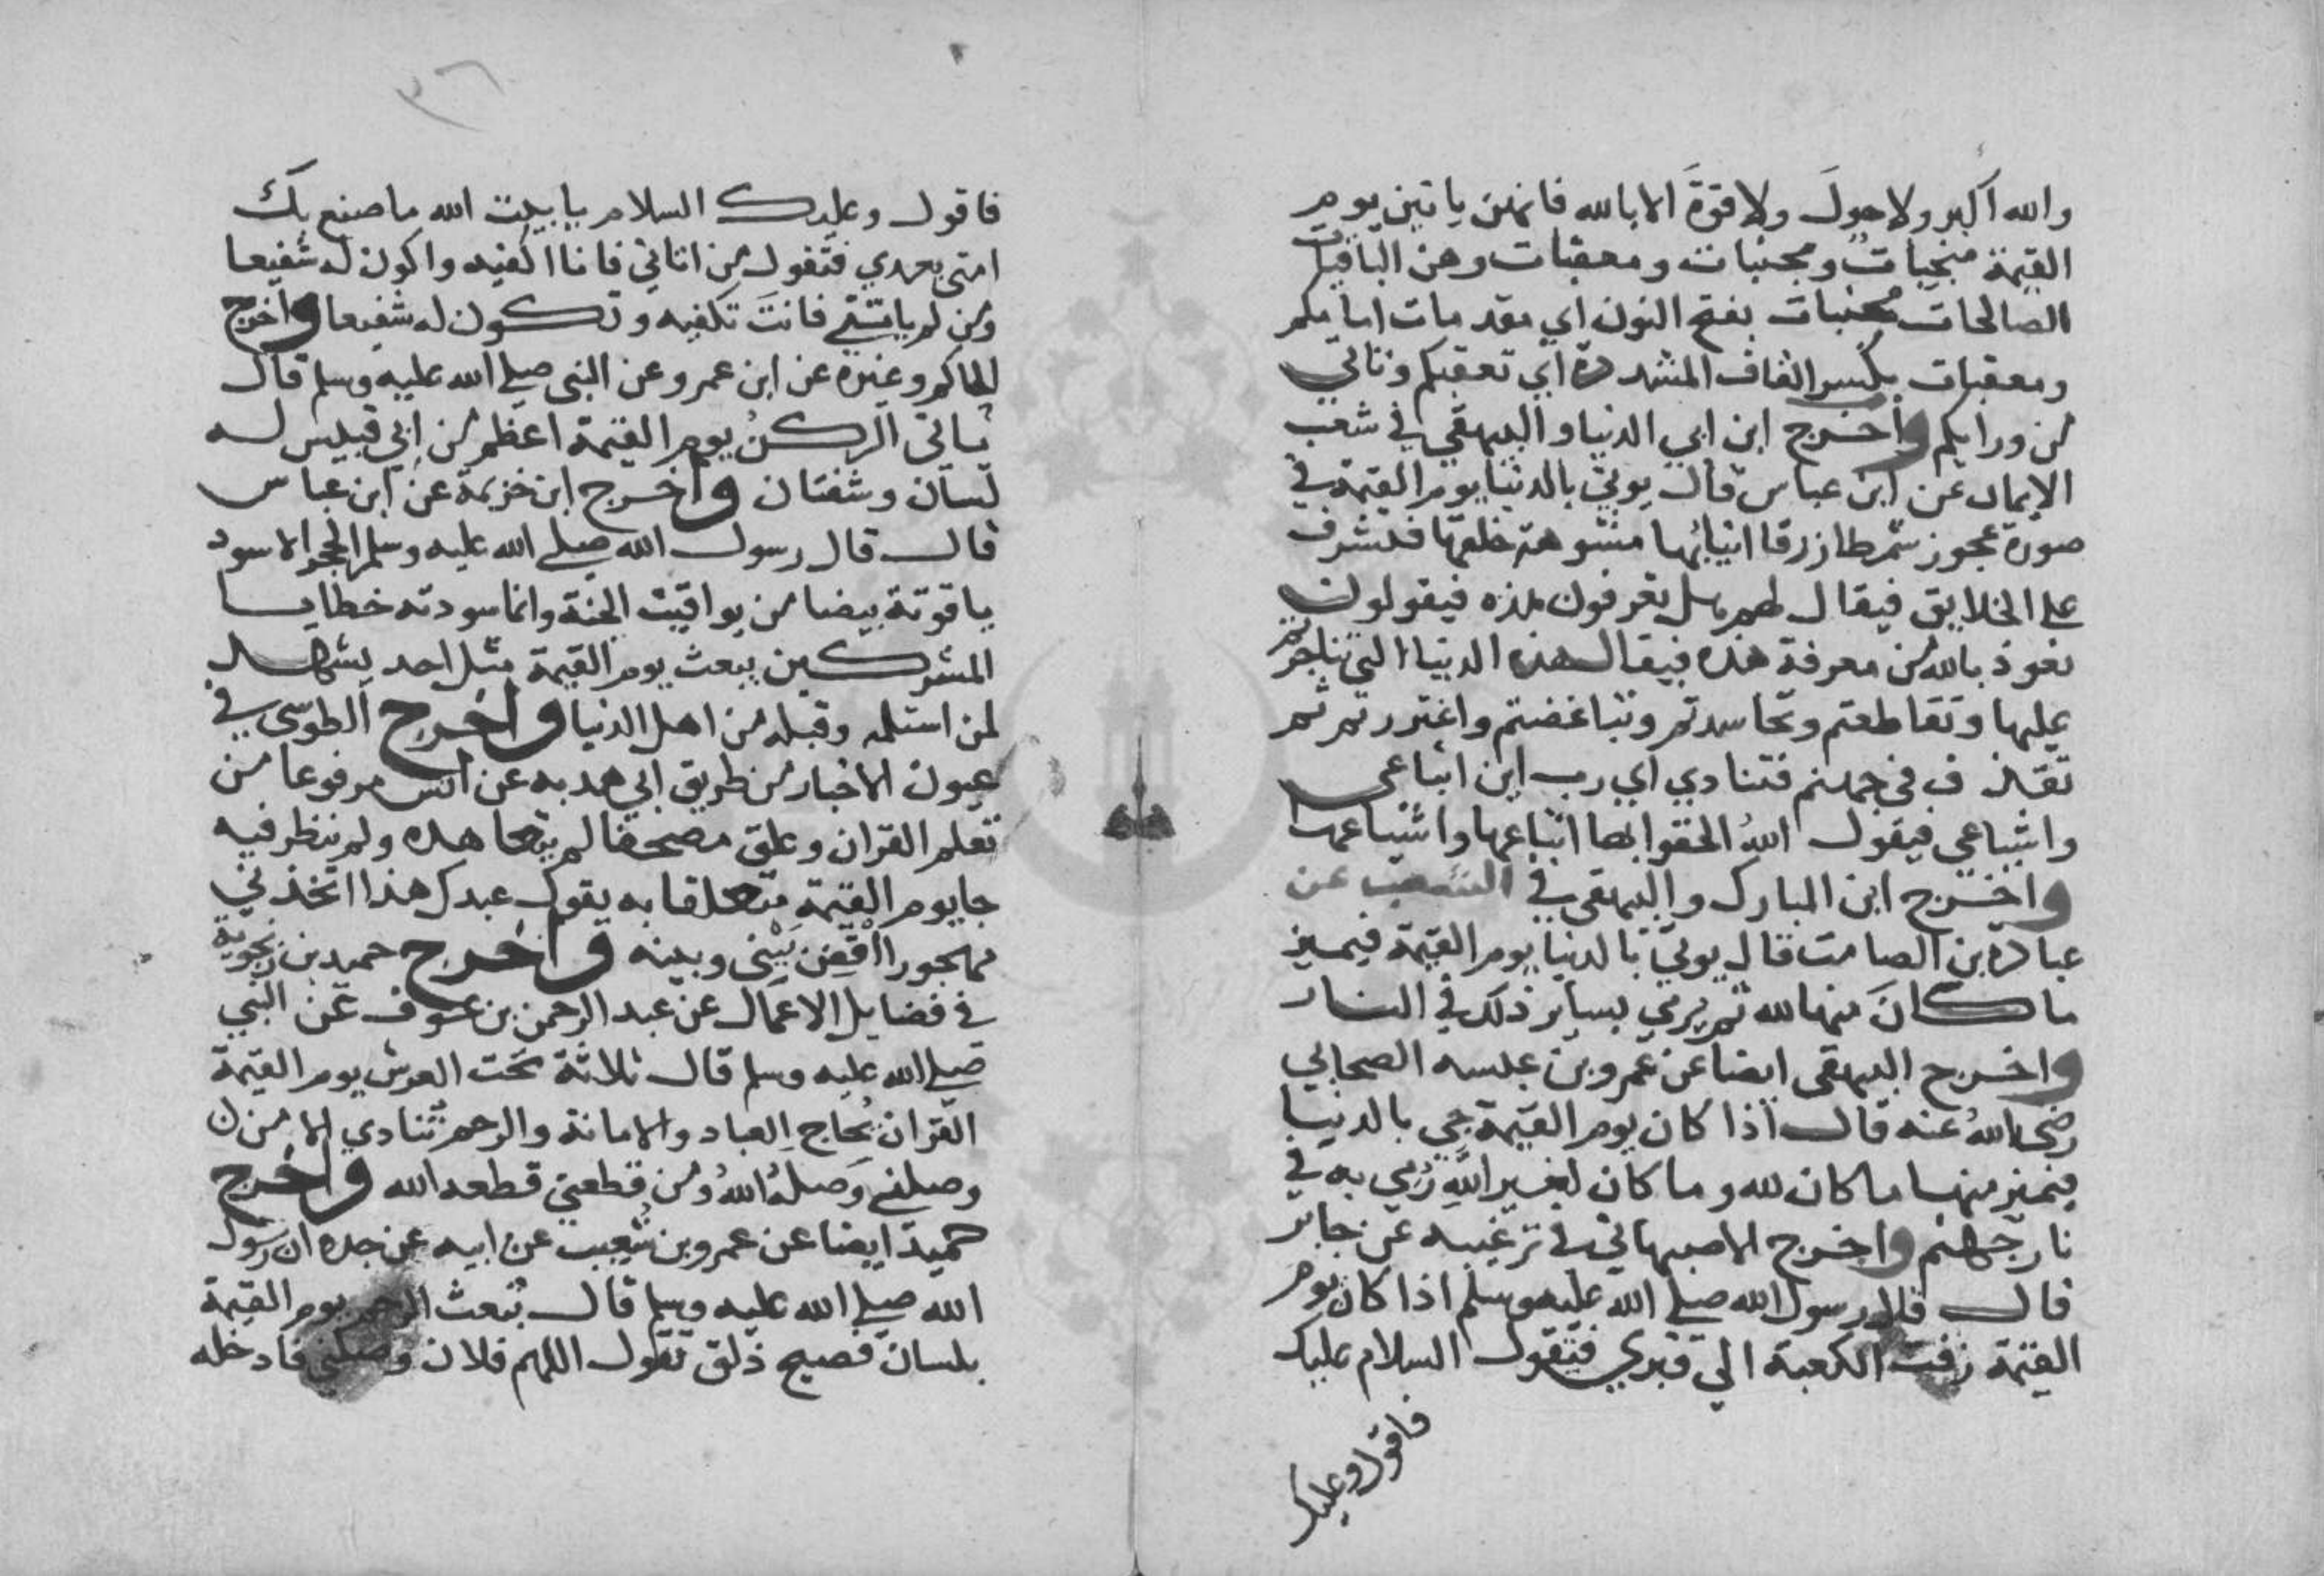 والله اكبر ولا حولَ ولا قوةَ الا بالله فانهن ياتين يوم
القيمة منجيات ومجنبات ومعقبات وهن الباقيات
الصالحات مُجنبات بفتح النون اي مقدمات امامكم
ومعقبات بكسر القاف المشددة اي تعقبكم وتاتي
من ورايكم واخرج ابن ابي الدنيا والبيهقي في شعب
الايمان عن ابن عباس قال يوتي بالدنيا يوم القيمة في
صورة عجوز شمطا زرقا انيابها مشوهة خلقها فتشرف
على الخلايق فيقال لهم هل تعرفون هذه فيقولون
نعوذ بالله من معرفة هذه فيقال هذه الدنيا التي تناحرتم
عليها وتقاطعتم وتحاسدتم وتباغضتم واغتررتم ثم
تقذف في جهنم فتنادي اي رب اين اتباعي
واشياعي فيقول اللهُ الحقوا بها اتباعها واشياعها
واخرج ابن المبارك والبيهقي في الشعب عن
عبادة بن الصامت قال يوتي بالدنيا يوم القيمة فيميز
ما كانَ منها لله ثم يرمي بساير ذلك في النار
واخرج البيهقي ايضا عن عمرو بن عبسه الصحابي
رضي اللهُ عنه قال اذا كان يوم القيمة جي بالدنيا
فيميز منها ما كان لله وما كان لغير اللهِ رُمي به في
نار جهنم واخرج الاصبهاني في ترغيبه عن جابر
قال قال رسول الله صلي الله عليه وسلم اذا كان يوم
القيمة زفت الكعبة الي قبري فتقول السلام عليك
فاقول وعليك
٣٦
فاقول وعليك السلام يا بيت الله ما صنع بك
امتي بعدي فتقول من اتاني فانا اكفيه واكون له شفيعا
ومن لم ياتني فانتَ تكفيه وتكون له شفيعا واخرج
الحاكم وغيره عن ابن عمرو عن النبي صلي الله عليه وسلم قال
ياتي الركنُ يوم القيمة اعظم من ابي قبيس له
لسان وشفتان واخرج ابن خزيمة عن ابن عباس
قال قال رسول الله صلي الله عليه وسلم الحجر الاسود
ياقوتة بيضا من يواقيت الجنة وانما سودته خطايا
المشركين يبعث يوم القيمة مثل احد يشهد
لمن استلمه وقبله من اهل الدنيا واخرج الطوسي في
عيون الاخبار من طريق ابي هدبه عن انس مرفوعا من
تعلم القران وعلق مصحفا لم يتعاهده ولم ينظر فيه
جا يوم القيمة متعلقا به يقول عبدك هذا اتخذني
مهجورا اقضِ بَيْني وبينه واخرج حميد بن زنجوية
في فضايل الاعمال عن عبد الرحمن بن عوف عن النبي
صلي الله عليه وسلم قال ثلاثة تحت العرش يوم القيمة
القران يُحاج العباد والامانة والرحم تنادي الا من
وصلني وَصلهُ اللهُ ومن قطعني قطعه الله واخرج
حميد ايضا عن عمرو بن شعيب عن ابيه عن جده ان رسول
الله صلي الله عليه وسلم قال تُبعث الرحم يوم القيمة
بلسان فصيح ذلق تقول اللهم فلان وصلني فادخله